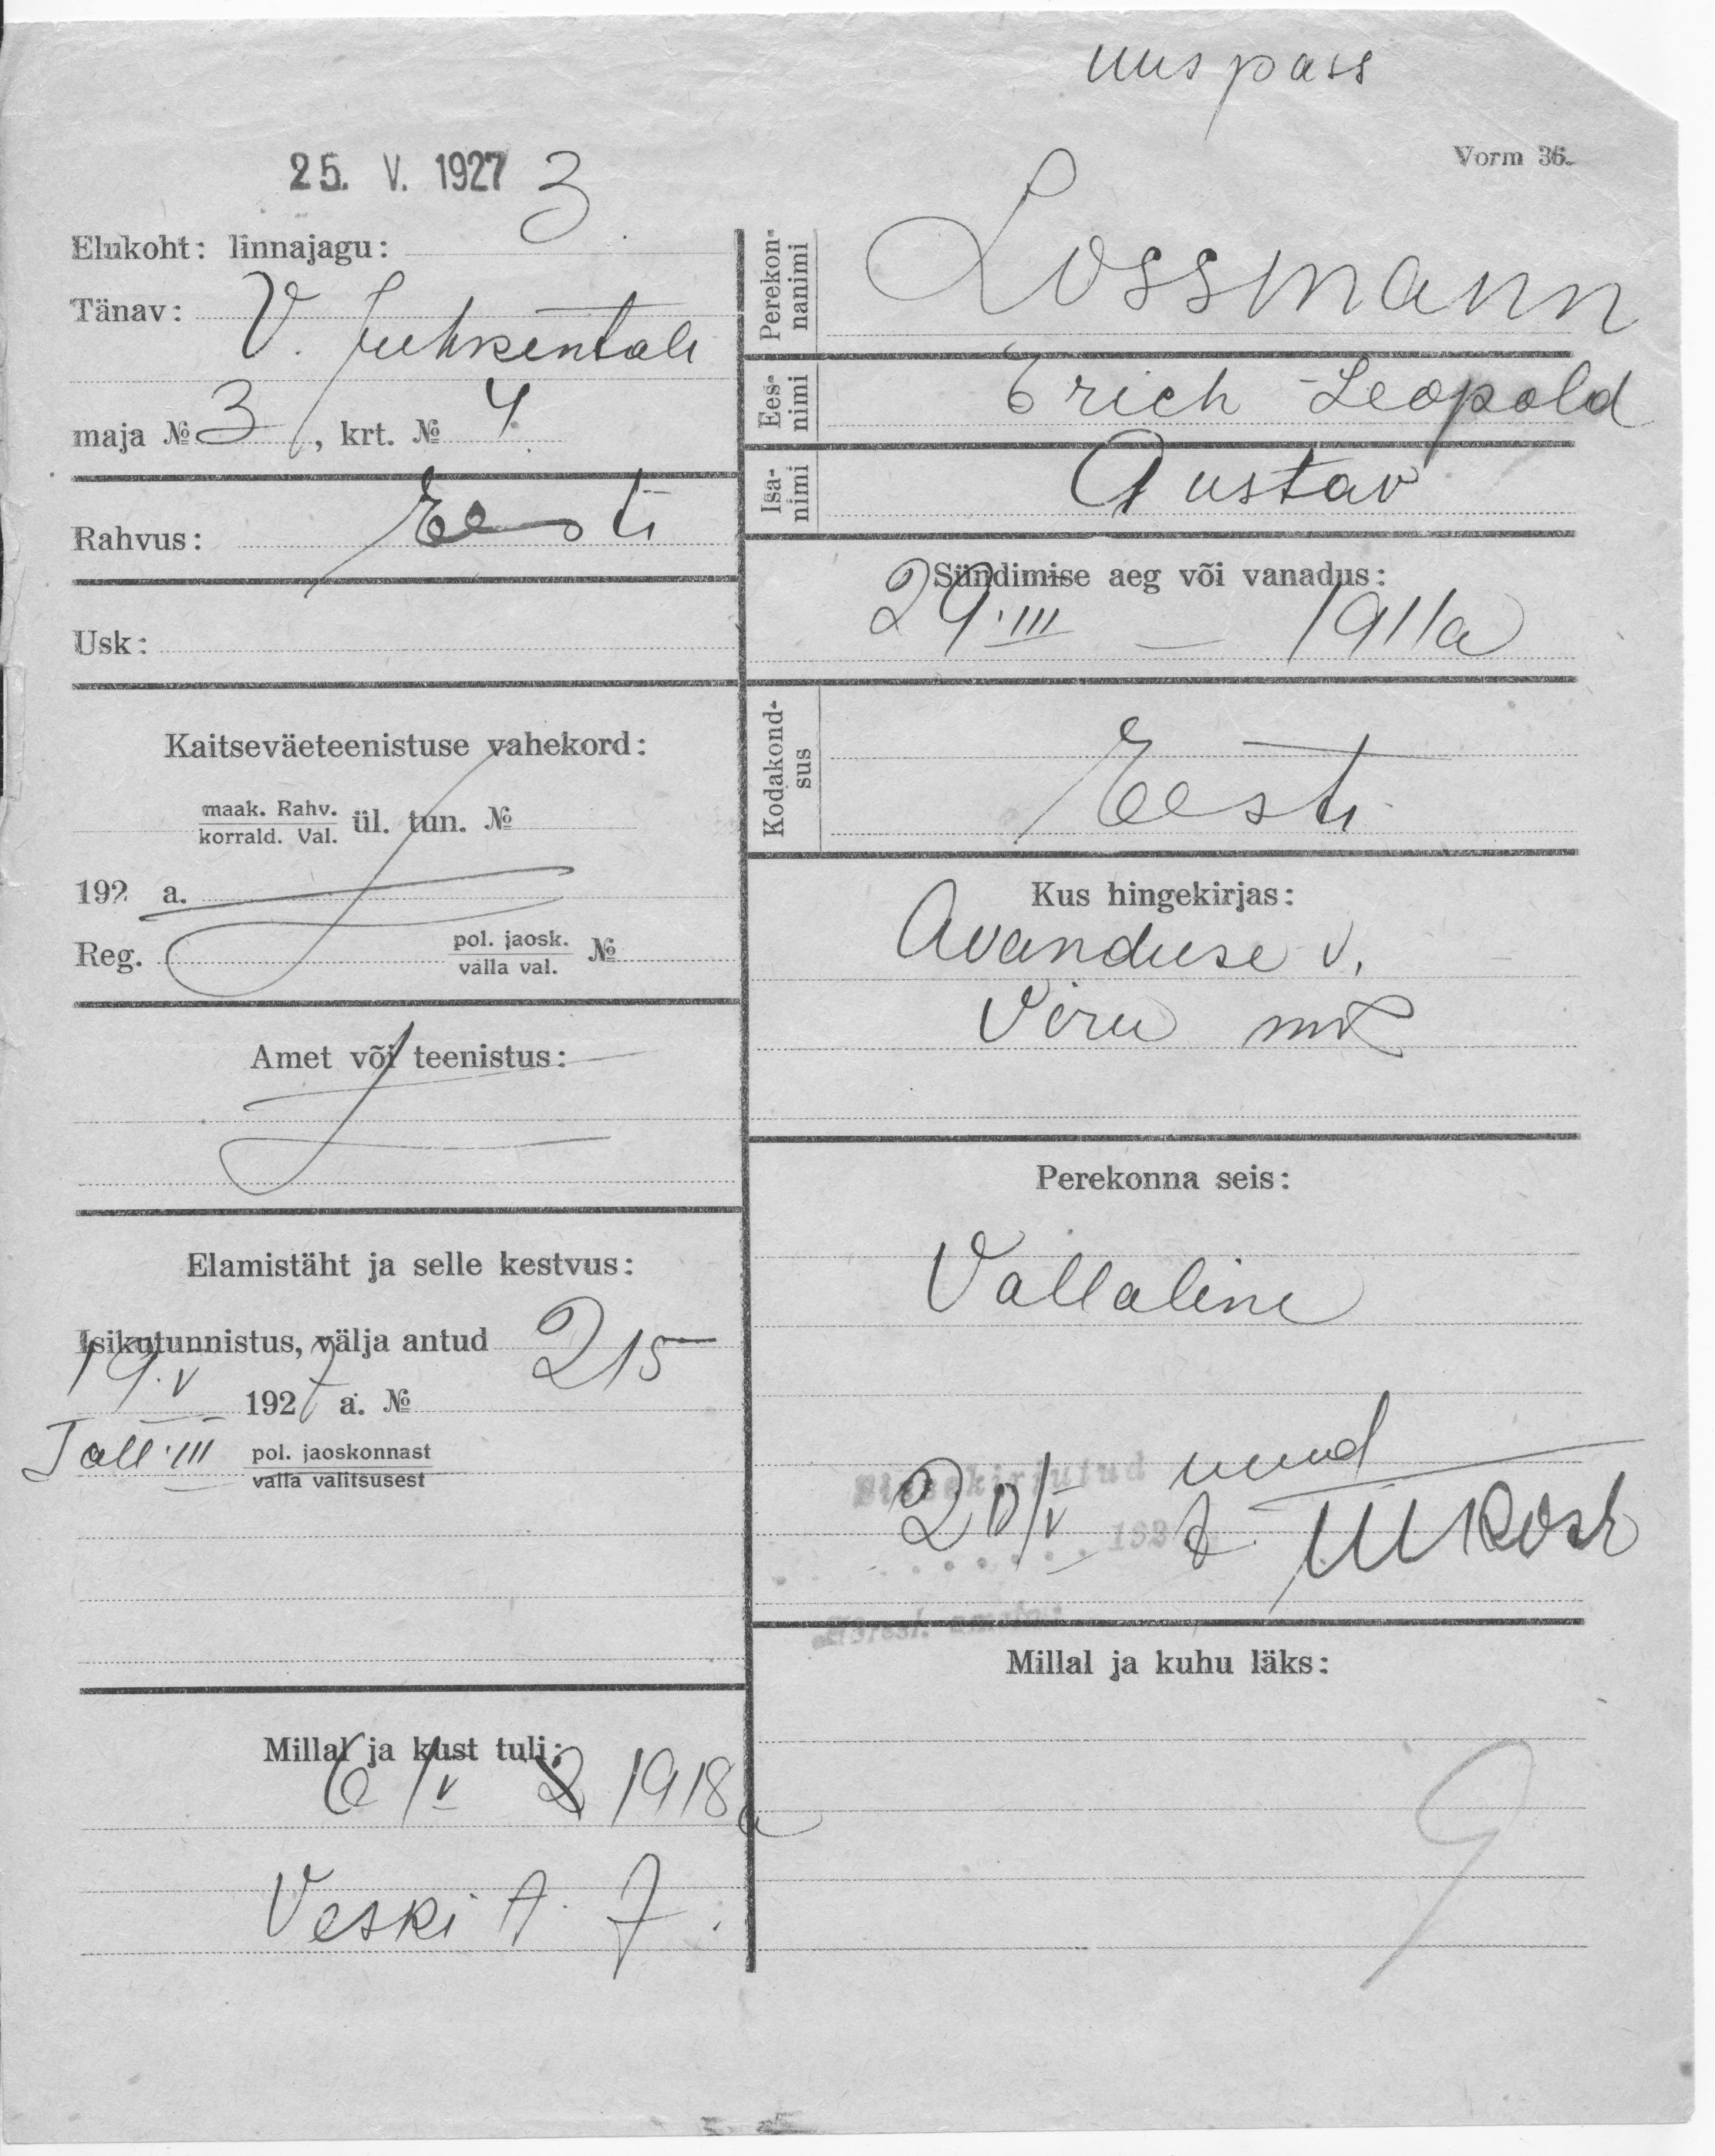 uus pass
Vorm 36.
25. V. 1927
Elukoht: linnajagu: 3
Tänav: V. Juhkentali
maja № 3, krt. № 4
Rahvus: Eesti
Usk:
Kaitseväeteenistuse vahekord:
maak. Rahv.
korrald. Val. ül. tun. №
192 a.
Reg. pol. jaosk. №
valla val.
Amet või teenistus:
Elamistäht ja selle kestvus:
Isikutunnistus, välja antud
19. V 1927 a. № 215
Tall. III pol. jaoskonnast
valla valitsusest
Millal ja kust tuli:
6/V 1918 a
Veski t. 7.
Perekon-
nanimi
Lossmann
Ees-
nimi
Erich-Leopold
Isa-
nimi
Gustav
Sündimise aeg või vanadus:
29. III – 1911 a
Kodakond-
sus
Eesti
Kus hingekirjas:
Avanduse v.
Viru mk
Perekonna seis:
Vallaline
Sissekirjutud
20/V 192
Millal ja kuhu läks: